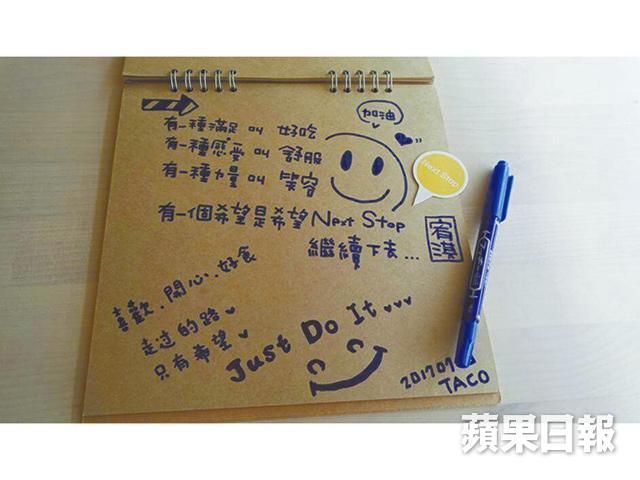 加油
有一種滿足叫 好吃
有一種感受叫 舒服
有一種力量叫 笑容
Next Stop
有一個希望是希望 Next Stop
繼續下去...
宥淇
喜歡.開心.好食
走过的路
只有希望
Just Do It
TACO
蘋果日報